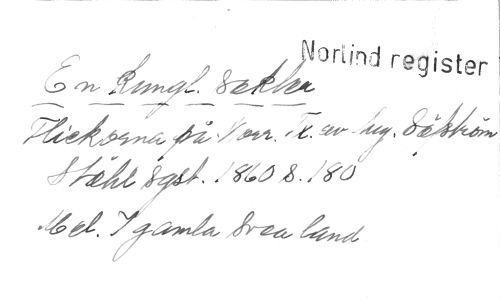 Norlind register
En Kungl. Sekter
Flickorna på Norr. Tx. av Aug. Säfström
Ståhl Sgst. 1860 s. 180
Mel. I gamla Svea land